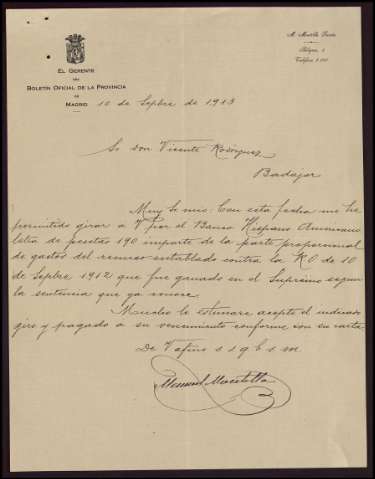 EL GERENTE
DEL
BOLETÍN OFICIAL DE LA PROVINCIA
DE
MADRID
10 de Sepbre de 1913
Sr Don Vicente Rodriguez
Badajoz
Muy Sr mio: Con esta fecha me he
permitido girar a V por el Banco Hispano Americano
letra de pesetas 190 importe de la parte proporcional
de gastos del recurso entablado contra la RO de 10
de Sepbre 1912 que fue ganado en el Supremo segun
la sentencia que ya conoce.
Mucho le estimare acepte el indicado
giro y pagado a su vencimiento conforme con su carta
De V afmo s s q b s m